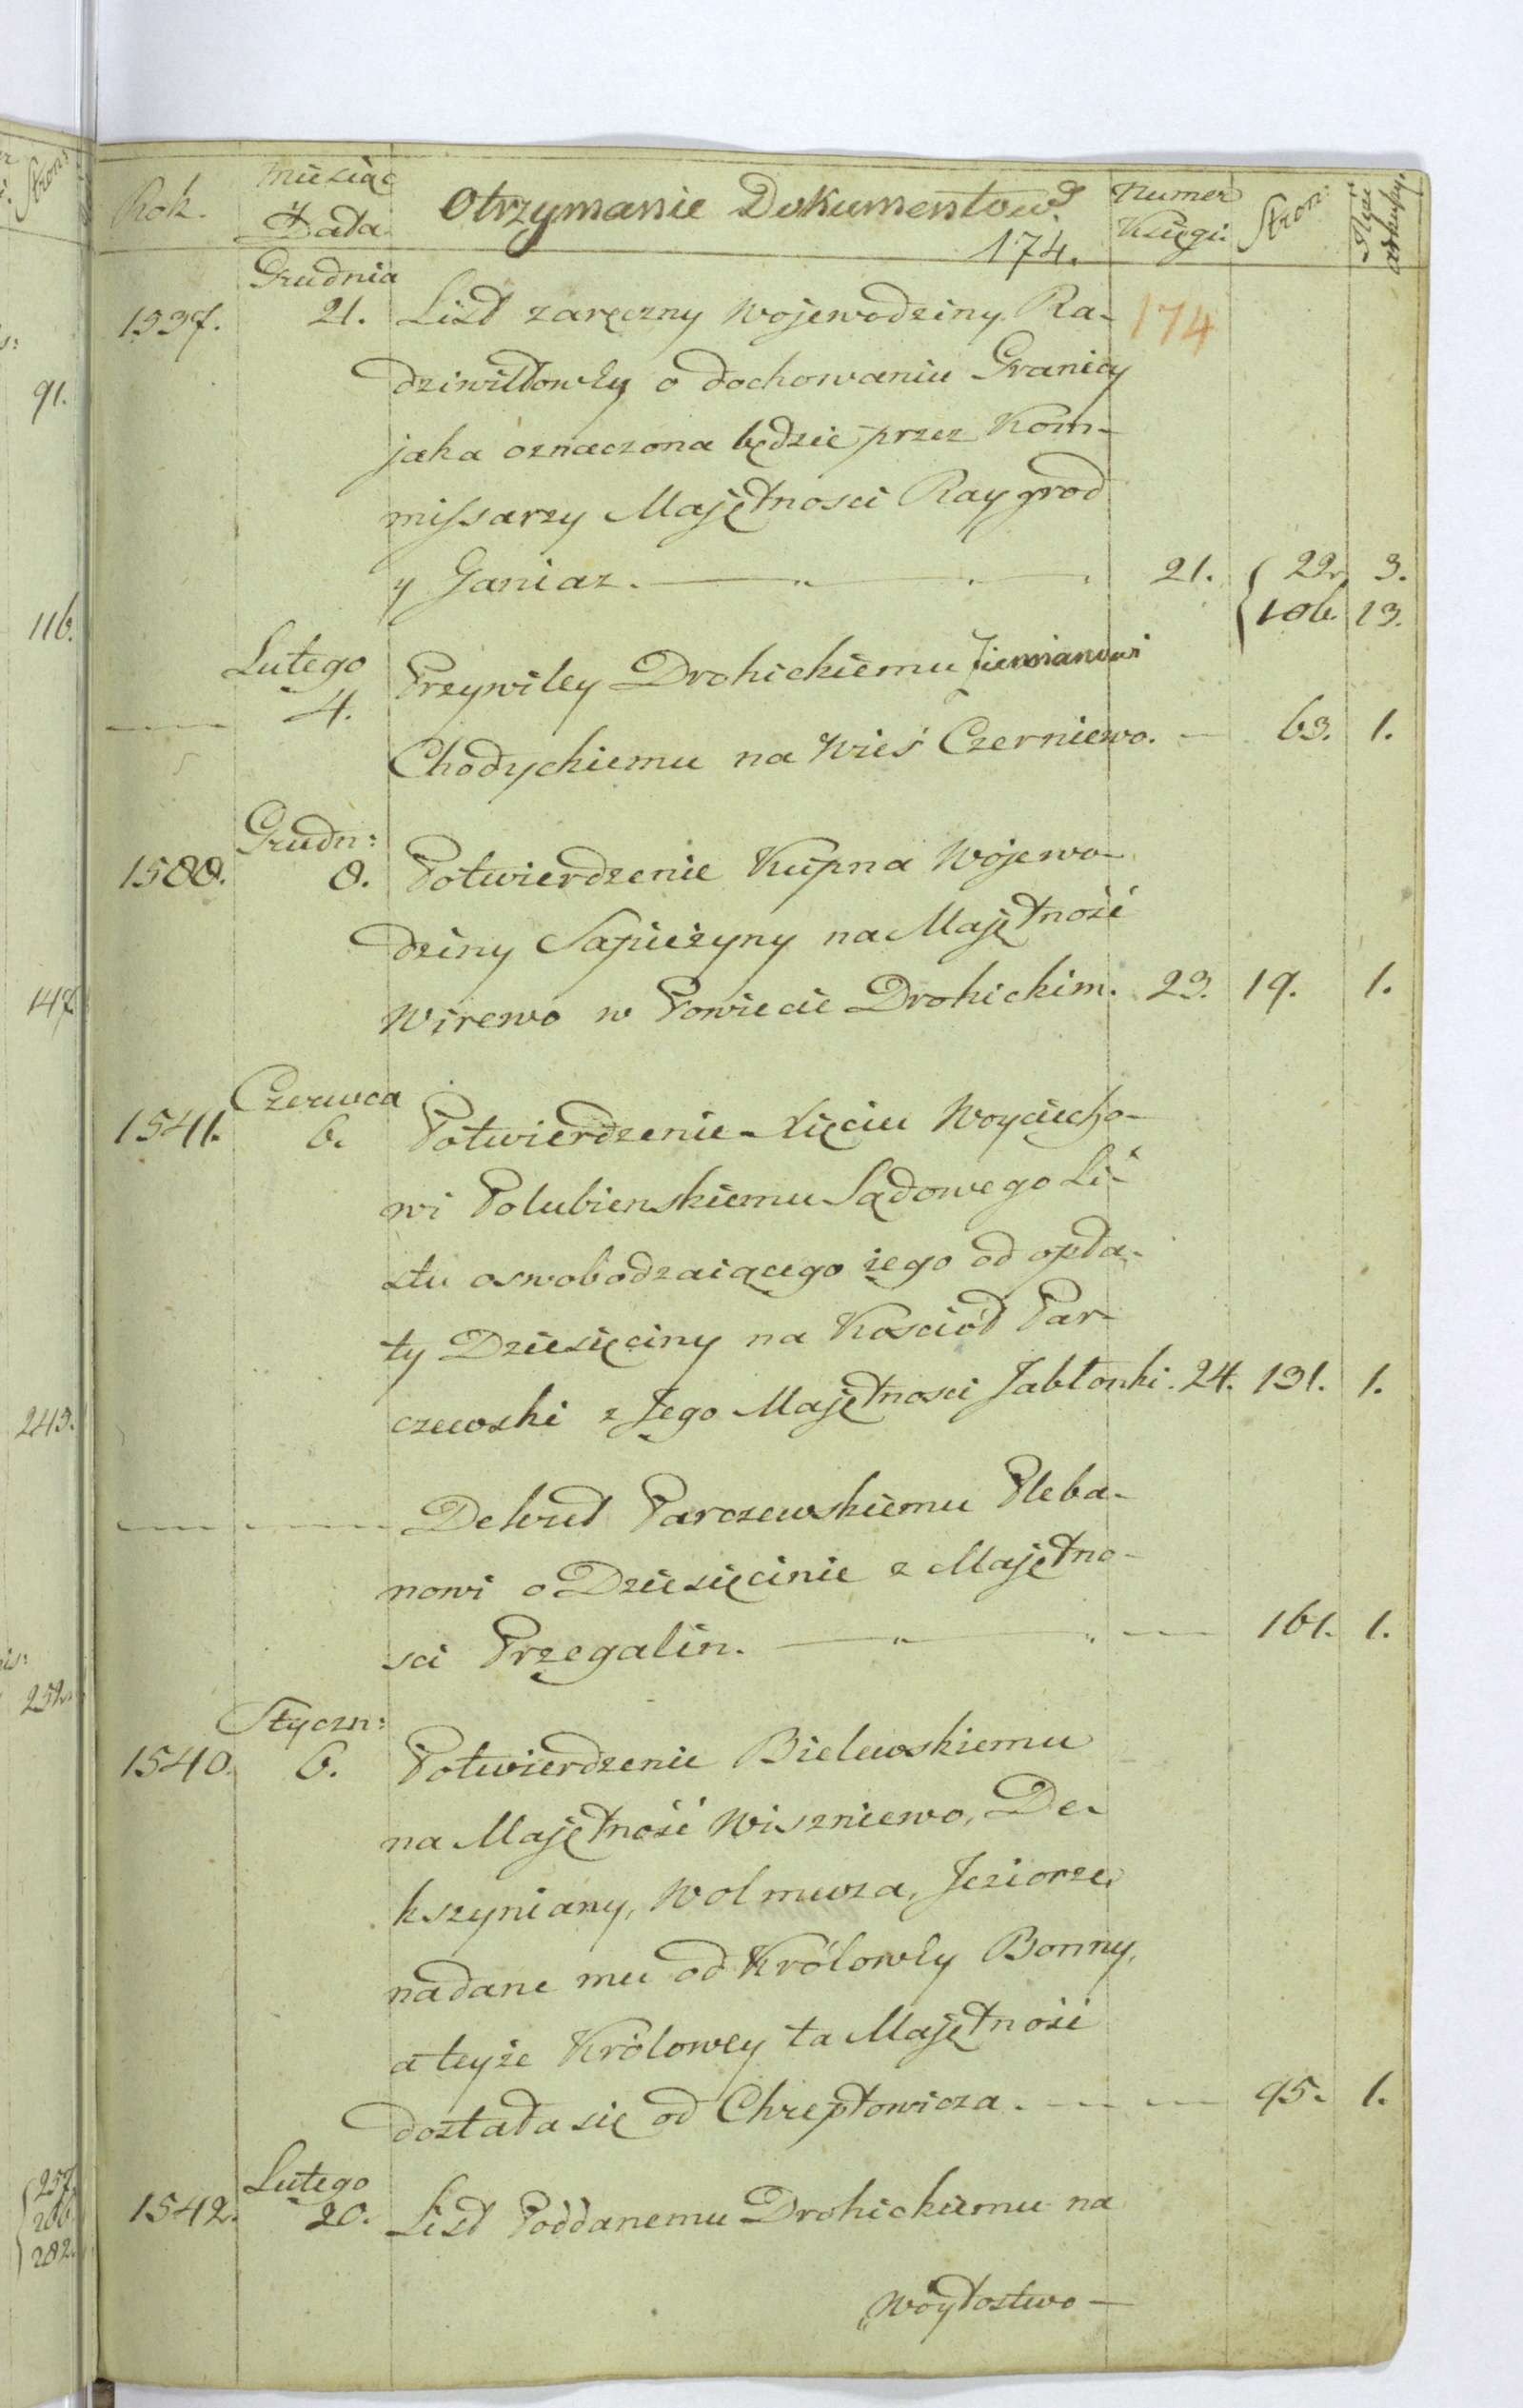 Rok. Miesiąc y Data. Otrzymanie Dokumentow. 174. Numer Księgi. Stron: arkuszy.
Grudnia
1537. 21. List zaręczny Wojewodziny Ra- 174
dziwiłłowey o dochowaniu Granicy
jaka oznaczona będzie przez Kom-
missarzy Majętnosci Raygrod
y Ganiaz. 21. 22. 3.
106. 13.
Lutego
4. Przywiley Drohickiemu Ziemianowi
Chodyckiemu na Wieś Czerniewo. 63. 1.
Grudn:
1588. 8. Potwierdzenie Kupna Wojewo-
dziny Sapieżyny na Majętność
Wirewo w Powiecie Drohickim. 23. 19. 1.
Czerwca
1541. 6. Potwierdzenie Xięciu Woyciecho-
wi Połubienskiemu Sądowego Li-
stu oswobodzaiącego iego od opła-
ty Dziesięciny na Kosciół Par-
czewski z Jego Majętnosci Jabłonki. 24. 131. 1.
Dekret Parczewskiemu Pleba-
nowi o Dziesięcinie z Majętno-
sci Przegalin. 161. 1.
Styczn:
1540. 6. Potwierdzenie Bielewskiemu
na Majętność Wiszniewo, De-
kszyniany, Wolmusza, Jeziorze,
nadane mu od Królowey Bonny,
a teyże Królowey ta Majętność
dostała się od Chreptowicza. 95. 1.
Lutego
1542. 20. List Poddanemu Drohickiemu na
Wóytostwo
91.
116.
147.
243.
252.
257.
266.
282.